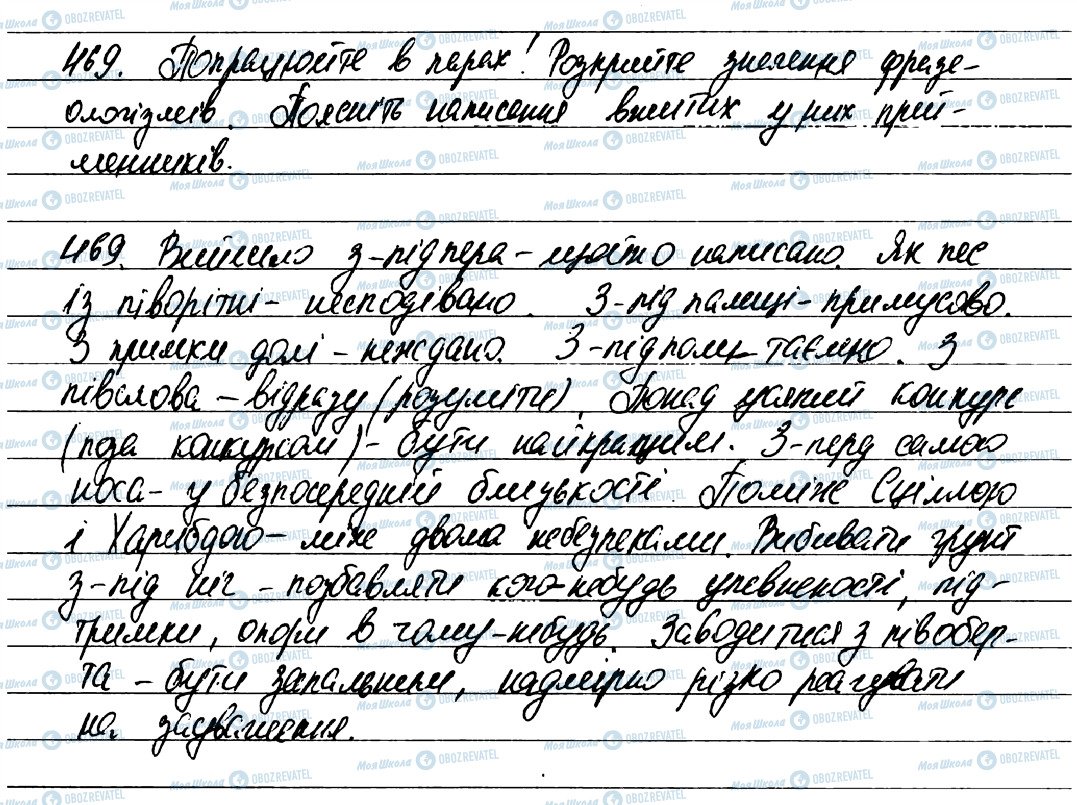 469. Попрацюйте в парах! Розкрийте значення фразе-
ологізмів. Поясніть написання вжитих у них прий-
менників.
469. Вийшло з-під пера - щойно написано. Як пес
із підворітні - несподівано. З-під палиці - примусово.
З примхи долі - неждано. З-під поли - таємно. З
півслова - відразу (розуміти). Понад усякий конкурс
(поза конкурсом) - бути найкращим. З-перед самого
носа - у безпосередній близькості. Поміж Сціллою
і Харибдою - між двома небезпеками. Вибивати ґрунт
з-під ніг - позбавляти кого-небудь упевненості, під-
тримки, опори в чому-небудь. Заводитися з півобер-
та - бути запальним, надмірно різко реагувати
на зауваження.